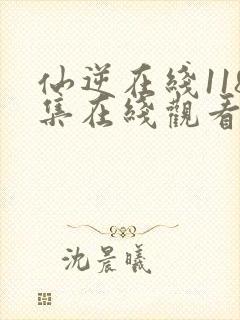 仙逆在綫118
集在綫觀看
沈晨曦